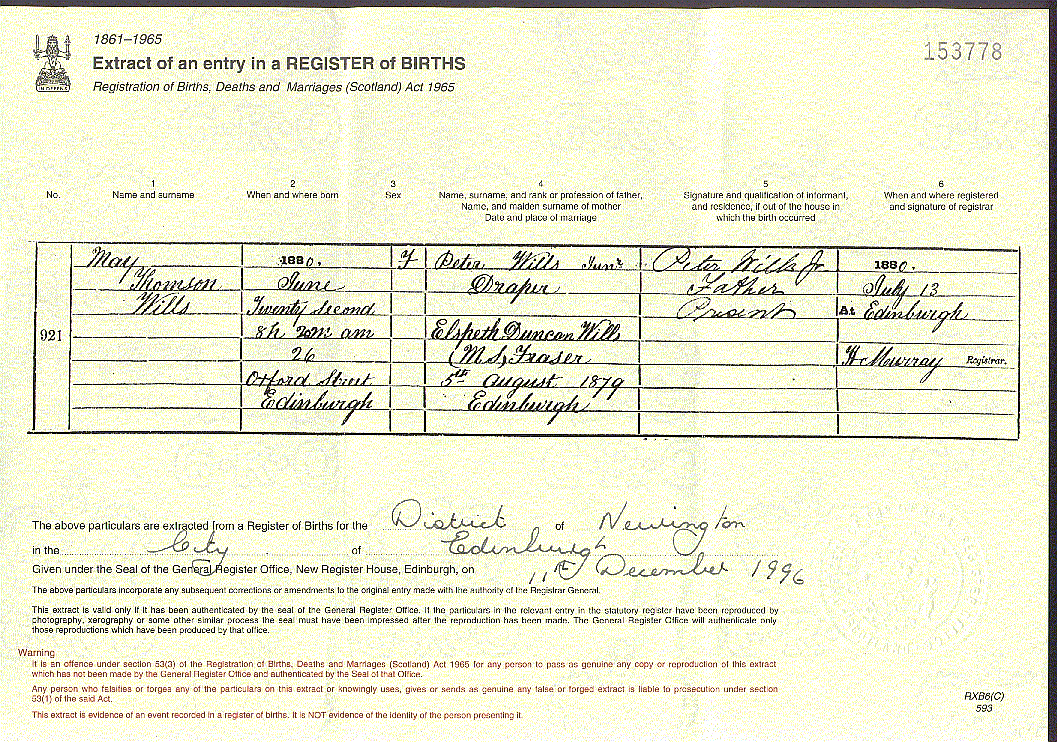 1861–1965
Extract of an entry in a REGISTER of BIRTHS
153778
Registration of Births, Deaths and Marriages (Scotland) Act 1965
No.
1
Name and surname
2
When and where born
3
Sex
4
Name, surname, and rank or profession of father,
Name, and maiden surname of mother
Date and place of marriage
5
Signature and qualification of informant,
and residence, if out of the house in
which the birth occurred
6
When and where registered
and signature of registrar
921
May
Thomson
Wills
1880.
June
Twenty Second
8h 20m am
26
Oxford Street
Edinburgh
F
Peter Wills Junr
Draper
Elspeth Duncan Wills
(M.S.) Fraser
5th August 1879
Edinburgh
Peter Wills Jr
Father
Present
1880.
July 13
At Edinburgh
H McMurray Registrar.
The above particulars are extracted from a Register of Births for the District of Newington
in the City of Edinburgh
Given under the Seal of the General Register Office, New Register House, Edinburgh, on 11th December 1996
The above particulars incorporate any subsequent corrections or amendments to the original entry made with the authority of the Registrar General.
This extract is valid only if it has been authenticated by the seal of the General Register Office. If the particulars in the relevant entry in the statutory register have been reproduced by
photography, xerography or some other similar process the seal must have been impressed after the reproduction has been made. The General Register Office will authenticate only
those reproductions which have been produced by that office.
Warning
It is an offence under section 53(3) of the Registration of Births, Deaths and Marriages (Scotland) Act 1965 for any person to pass as genuine any copy or reproduction of this extract
which has not been made by the General Register Office and authenticated by the Seal of that Office.
Any person who falsifies or forges any of the particulars on this extract or knowingly uses, gives or sends as genuine any false or forged extract is liable to prosecution under section
53(1) of the said Act.
This extract is evidence of an event recorded in a register of births. It is NOT evidence of the identity of the person presenting it.
RXB6(C)
593